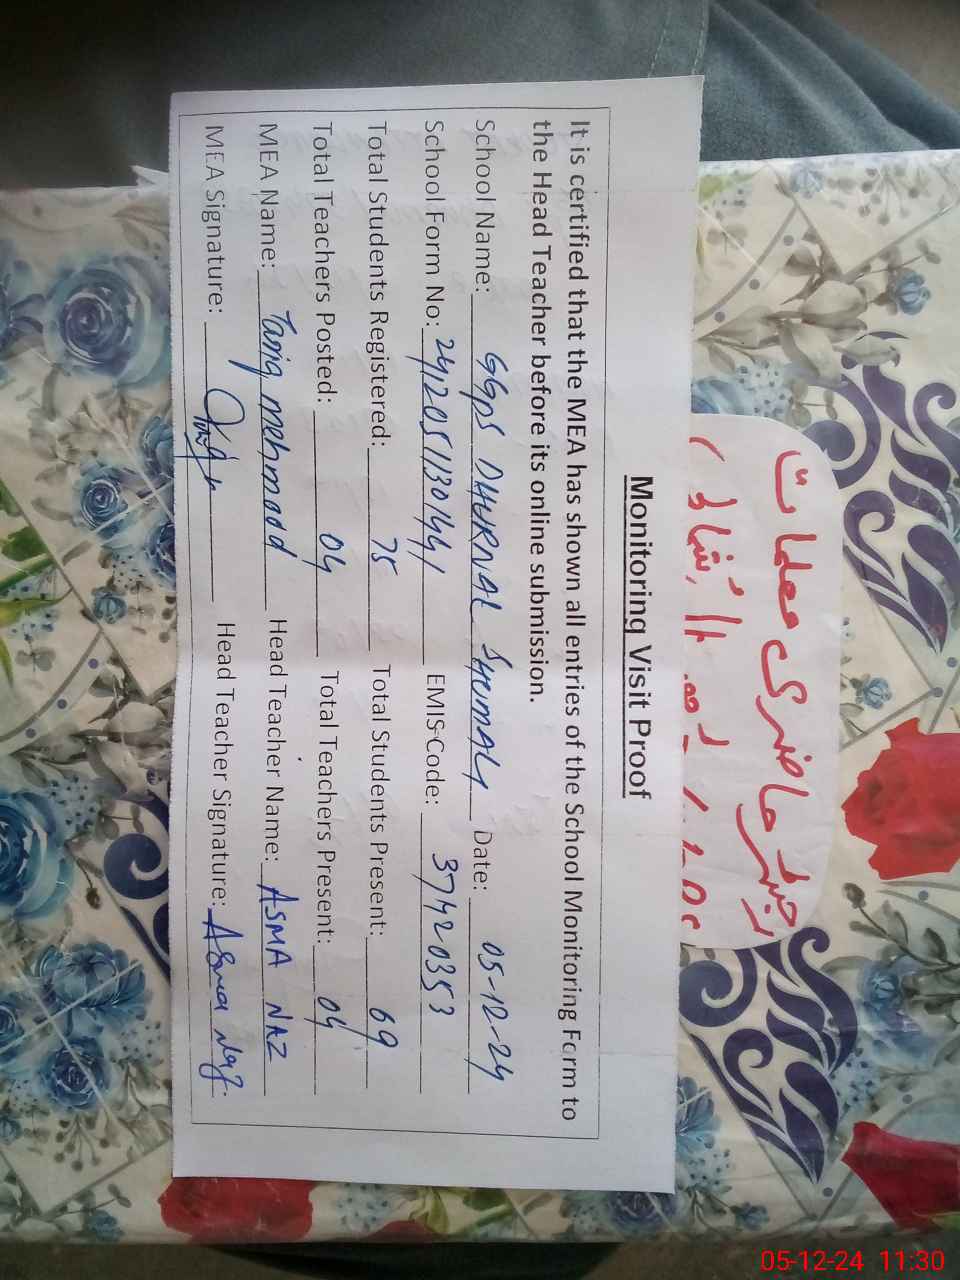 رجسٹر حاضری معلمات
Monitoring Visit Proof
It is certified that the MEA has shown all entries of the School Monitoring Form to
the Head Teacher before its online submission.
School Name: GGPS DHURNAL SHUMALI Date: 05-12-24
School Form No: 24120511301441 EMIS Code: 37420353
Total Students Registered: 75 Total Students Present: 69
Total Teachers Posted: 04 Total Teachers Present: 04
MEA Name: Tariq mehmood Head Teacher Name: ASMA NAZ
MEA Signature: Head Teacher Signature: Asma Naz
05-12-24 11:30